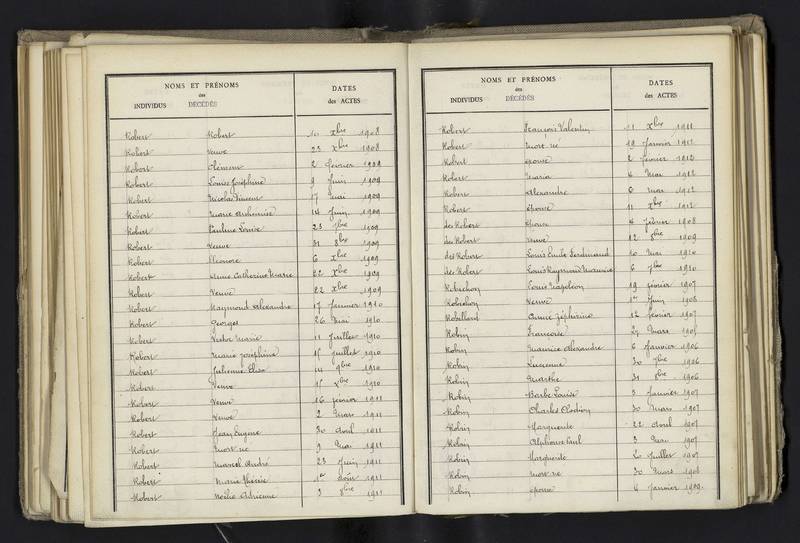 NOMS ET PRÉNOMS
des
INDIVIDUS DÉCÉDÉS
DATES
des ACTES
Robert Robert 10 Xbre 1908
Robert Veuve 23 Xbre 1908
Robert Clément 2 février 1909
Robert Louise Joséphine 9 Juin 1909
Robert Nicolas Vincent 17 Mai 1909
Robert Marie 14 Juin 1909
Robert Pauline Louise 23 7bre 1909
Robert Veuve 31 8bre 1909
Robert Eléonore 6 Xbre 1909
Robert Anne Catherine Marie 22 Xbre 1909
Robert Veuve 22 Xbre 1909
Robert Raymond Alexandre 17 Janvier 1910
Robert Georges 26 Mai 1910
Robert Victor Marie 11 Juillet 1910
Robert Marie Joséphine 15 Juillet 1910
Robert Julienne Elisa 14 9bre 1910
Robert Veuve 15 Xbre 1910
Robert Veuve 16 février 1911
Robert Veuve 2 Mars 1911
Robert Jean Eugène 30 Avril 1911
Robert Mort né 9 Mai 1911
Robert Marcel André 23 Juin 1911
Robert Marie Thérèse 1er Août 1911
Robert Noëlie Adrienne 3 8bre 1911
NOMS ET PRÉNOMS
des
INDIVIDUS DÉCÉDÉS
DATES
des ACTES
Robert François Valentin 11 Xbre 1911
Robert Mort né 19 Janvier 1912
Robert épouse 2 février 1912
Robert Maria 4 Mai 1912
Robert Alexandre 6 Mai 1912
Robert épouse 11 Xbre 1912
des Robert épouse 4 février 1908
des Robert Veuve 12 8bre 1909
des Robert Louis Emile Ferdinand 10 Mai 1910
des Robert Louis Raymond Maurice 6 7bre 1910
Robichon Louis Napoléon 19 février 1907
Robichon Veuve 1er Juin 1908
Robillard Zéphirine 12 février 1907
Robin Françoise Mars 1905
Robin Maurice Alexandre 6 Janvier 1906
Robin Lucienne 30 7bre 1906
Robin Marthe 31 8bre 1906
Robin Barbe Louise 3 Janvier 1907
Robin Charles Clodion 30 Mars 1907
Robin Marguerite 22 Avril 1907
Robin Alphonse Paul 3 Mai 1907
Robin Marguerite 20 Juillet 1907
Robin Mort né 30 Mars 1908
Robin épouse 4 Janvier 1909